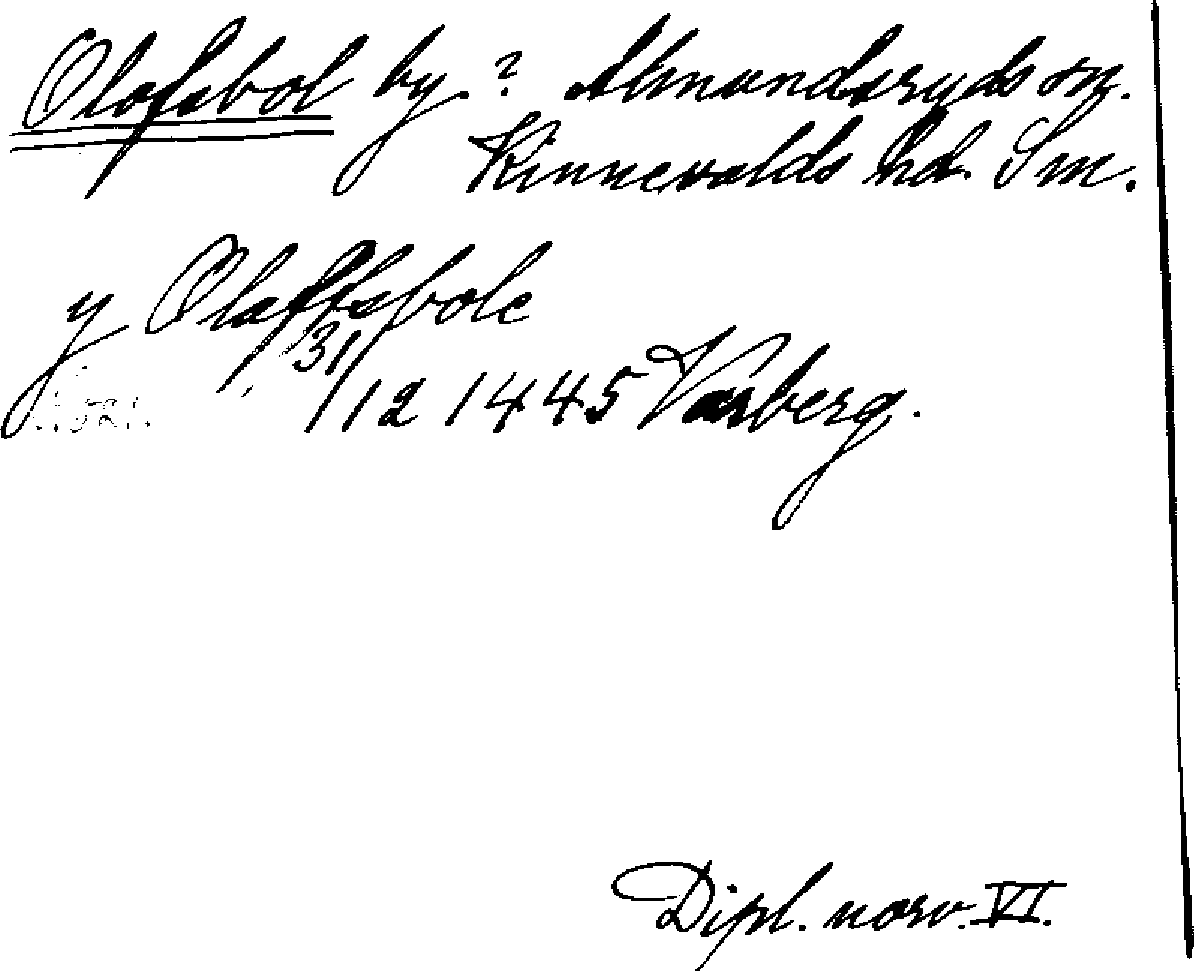 Olofsbol by? Almundsryds sn.
Kinnevalds hd. Sm.
y Olafftsbole
31/12 1445 Varberg.
Dipl. norv. VI.